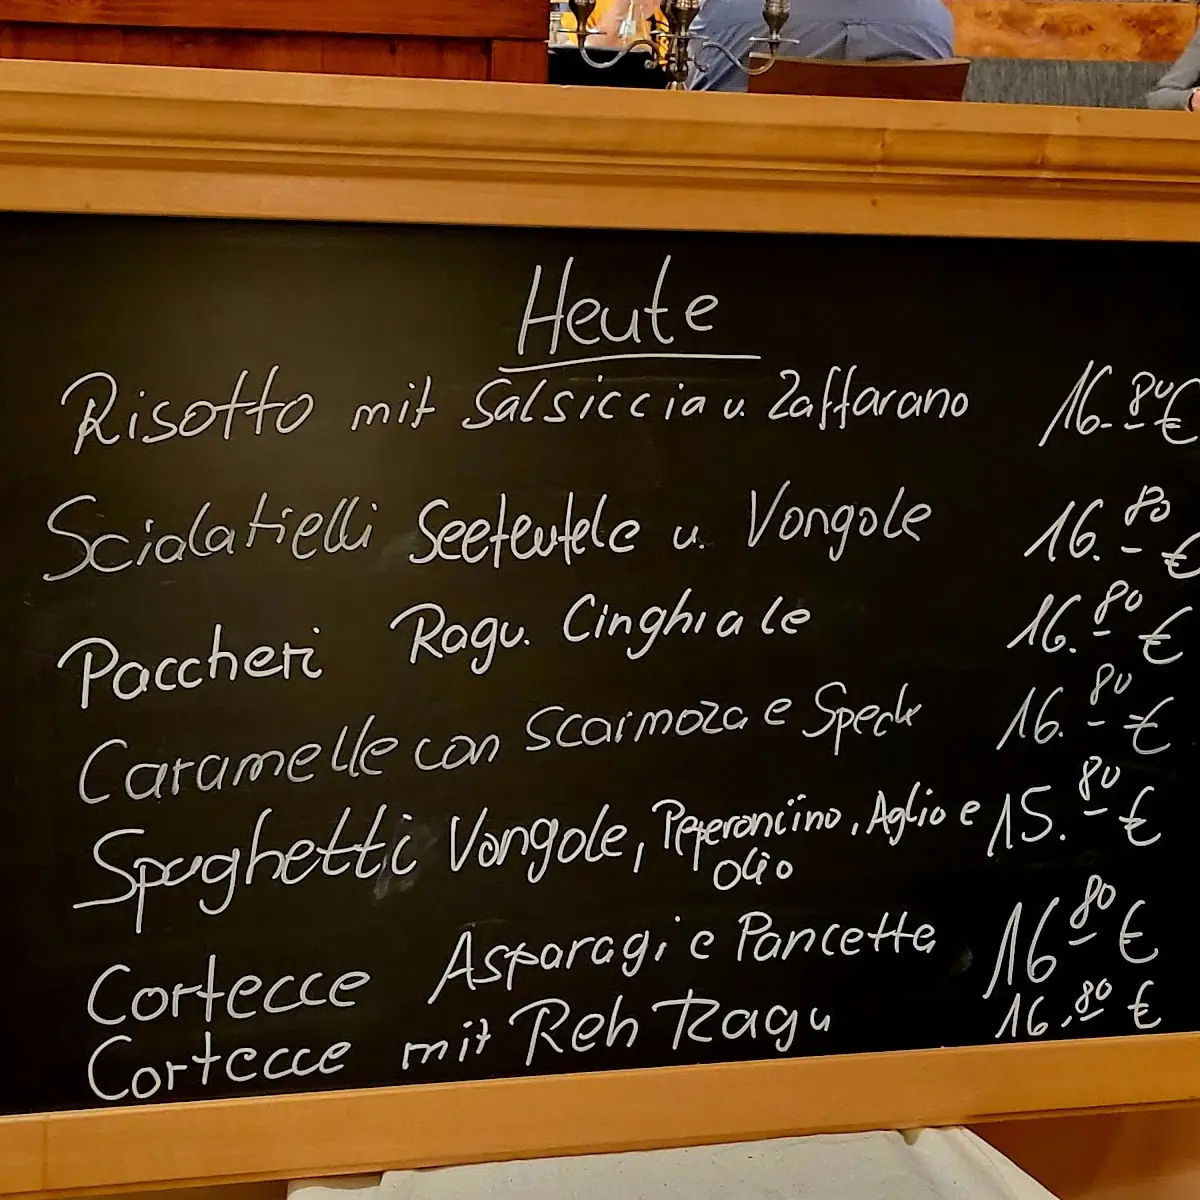 Heute
Risotto mit Salsiccia u. Zaffarano 16.80€
Scialatielli Seeteufele u. Vongole 16.80€
Paccheri Ragu. Cinghiale 16.80€
Caramelle con Scarmoza e Speck 16.80€
Spaghetti Vongole, Peperonciino, Aglio e 15.80€
olio
Cortecce Asparagi e Pancetta 16 80€
Cortecce mit Reh Ragu 16,80€